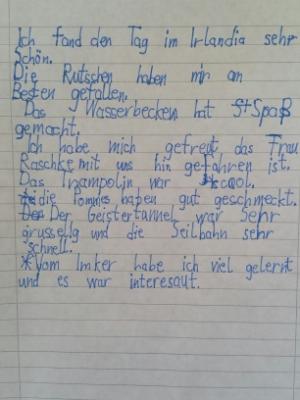 Ich fand den Tag im Irlandia sehr
Schön.
Die Rutschen haben mir am
Besten gefallen.
Das Wasserbecken hat Spaß
gemacht.
Ich habe mich gefreut das Frau
Raschke mit uns hin gefahren ist.
Das Trampolin war cool.
die Pommes haben gut geschmeckt.
Der Geistertunnel war Sehr
grusselig und die Seilbahn sehr
schnell.
*Vom Imker habe ich viel gelernt
und es war interesaut.